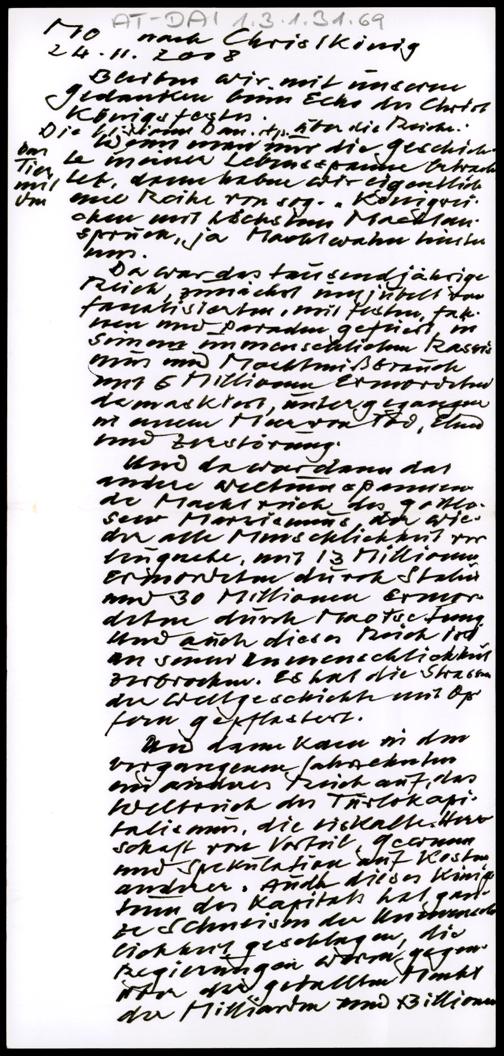 AT-DAI 1.3.1.31.69
MO nach Christkönig
24.11.2008
Bleiben wir mit unseren
Gedanken beim Echo des Christ
Königsfestes.
Die Dan. über die Reiche.
vom
Tier
mit
den
Wenn man nur die Geschich
te meiner Lebensspanne betrach
tet, dann haben wir eigentlich
eine Reihe von sog. "Königrei
chen mit höchstem Machtan-
spruch, ja Machtwahn hinter
uns.
Da war das tausendjährige
Reich, zunächst umjubelt von
fanatisierten, mit Festen, Fah-
nen und Paraden gefeiert, in
seinem unmenschlichen Rassis
mus und Machtmißbrauch
mit 6 Millionen Ermordeten
demaskiert, untergegangen
in einem Meer von Tod, Elend
und Zerstörung.
Und da war dann das
andere weltumspannen-
de Machtreich des gottlo-
sen Marxismus, der wie-
der alle Menschlichkeit ver
leugnete, mit 13 Millionen
Ermordeten durch Stalin
und 30 Millionen Ermor-
deten durch Maotsetung
Und auch dieses Reich ist
an seiner Unmenschlichkeit
zerbrochen. Es hat die Strassen
der Weltgeschichte mit Op
fern gepflastert.
Und dann kam in den
vergangenen Jahrzehnten
ein anderes Reich auf, das
Weltreich des Turbokapi-
talismus, die eiskalte Herr
schaft von Vorteil, Gewinn
und Spekulation auf Kosten
anderer. Auch dieses König
tum des Kapitals hat gan-
ze Schneisen der Unmensch
lichkeit geschlagen, die
Regierungen waren gegen-
über der geballten Macht
der Milliarden und Billionen